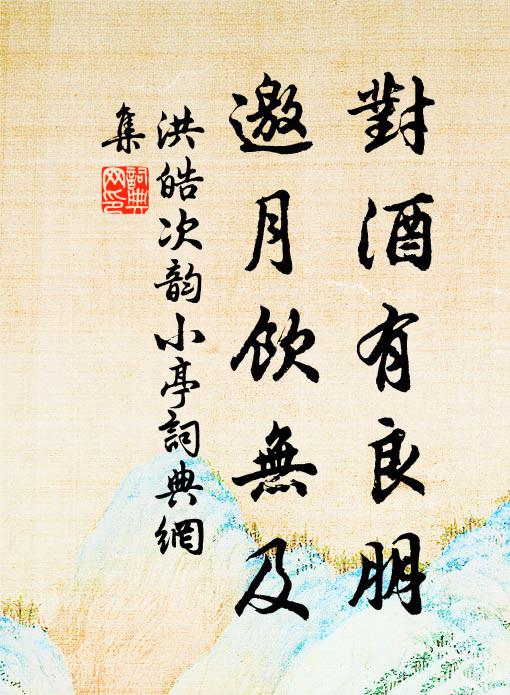 對酒有良朋
邀月飲無及
洪皓次韵小亭詞典網
集
詞典网印